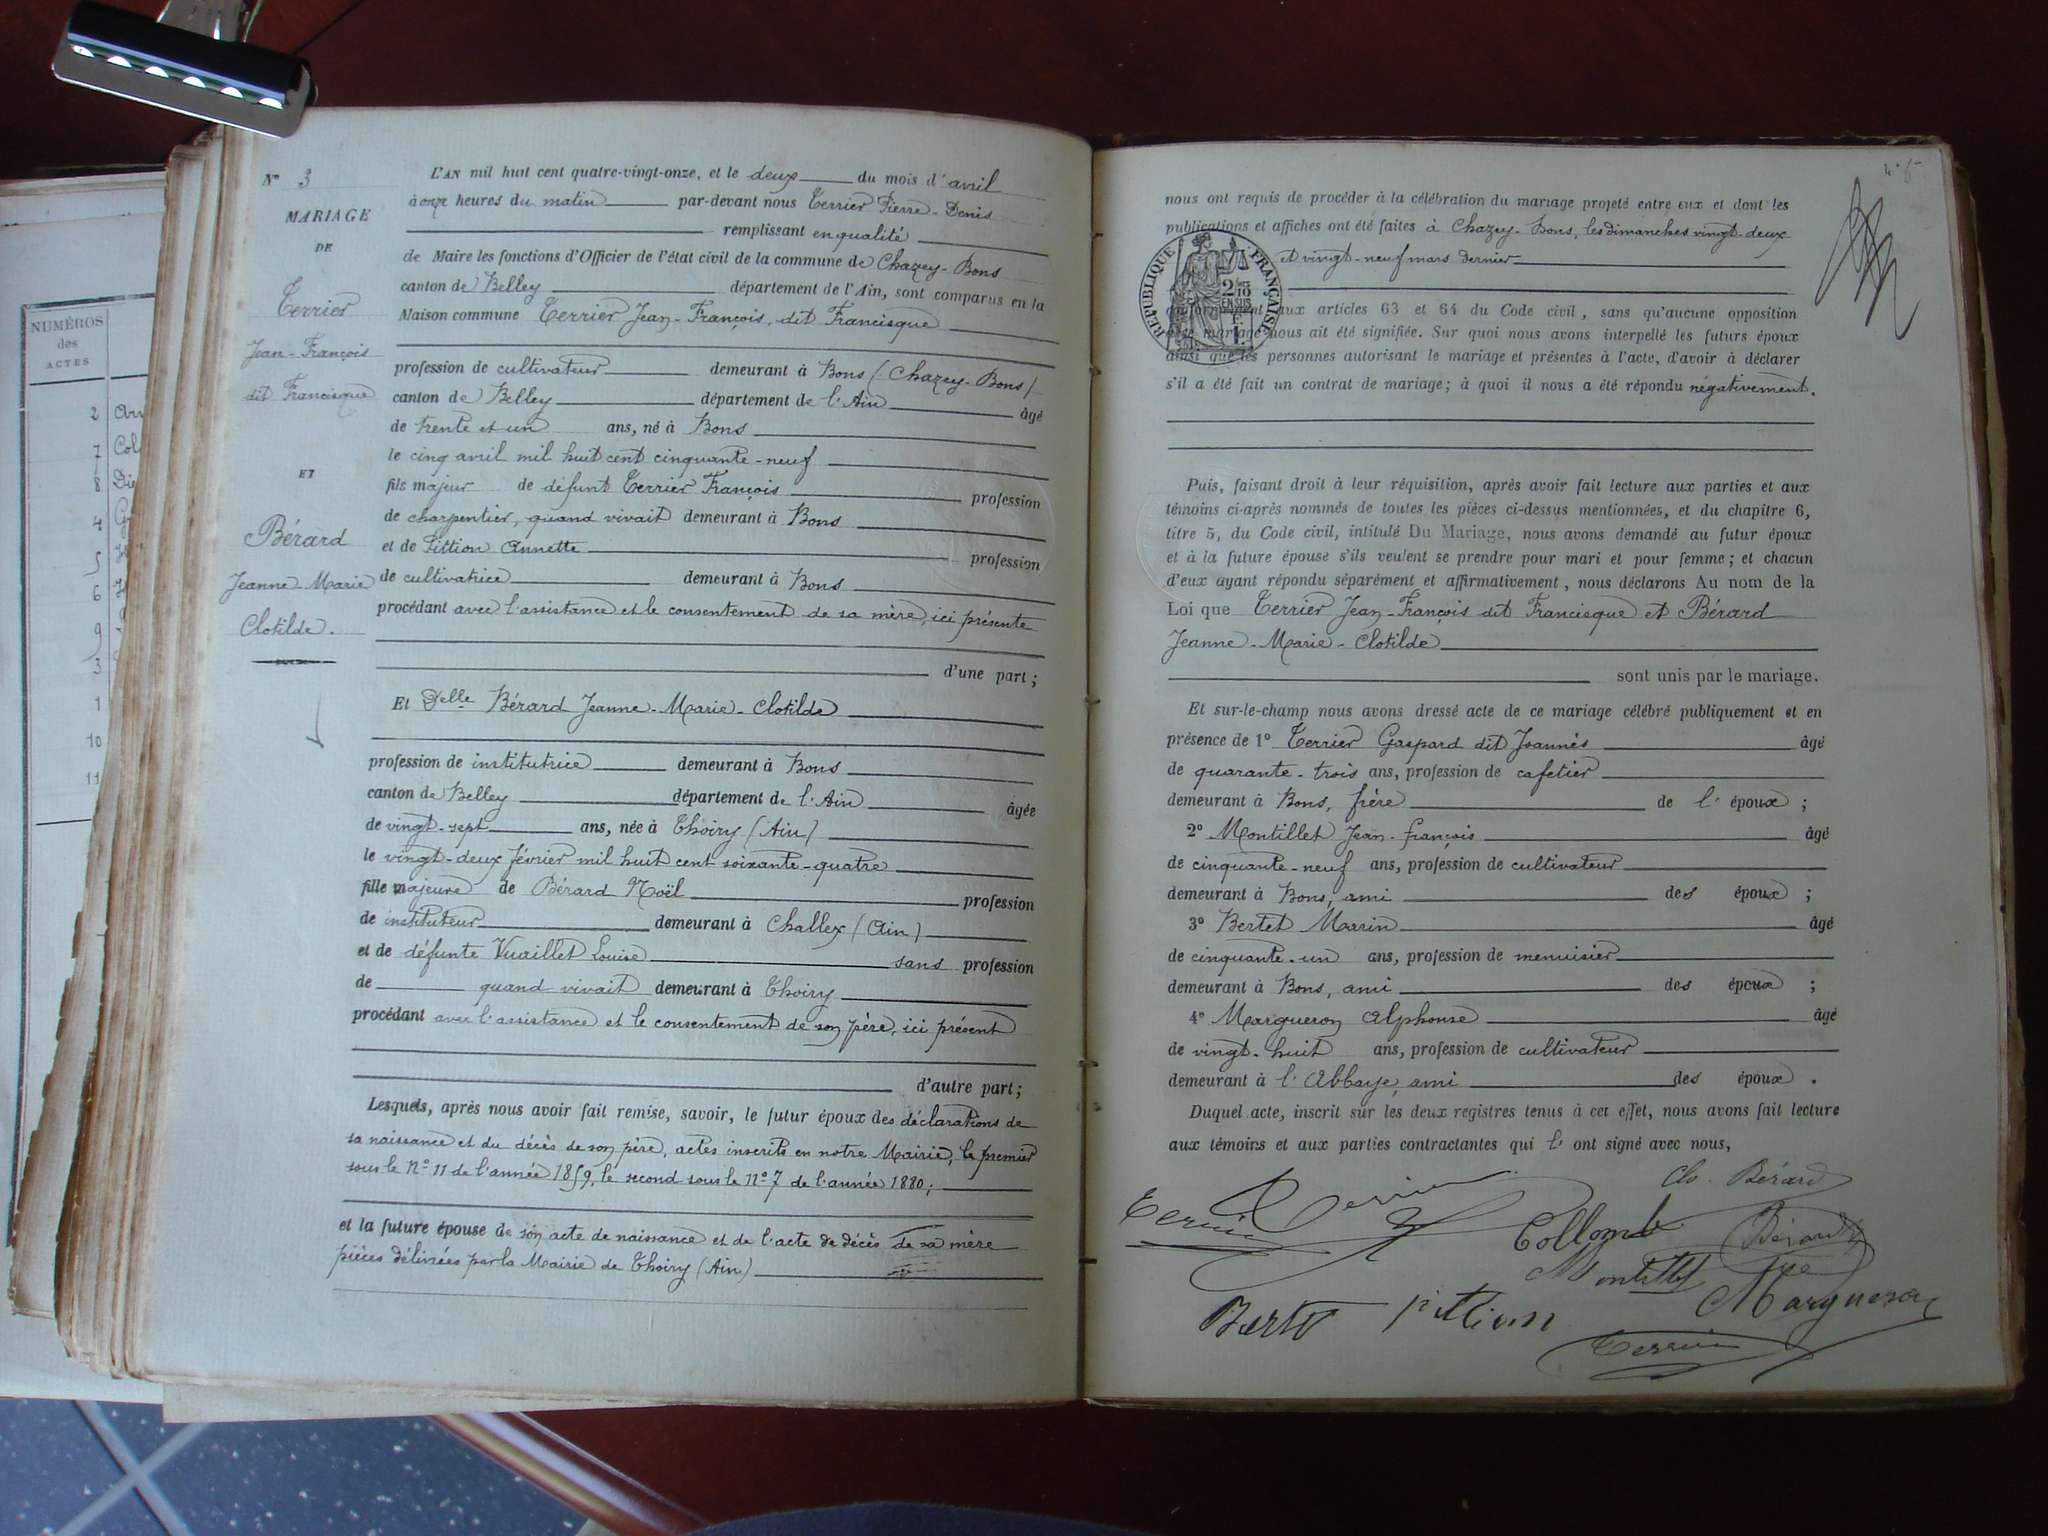 NUMÉROS
des
ACTES
2
7
8
4
5
6
9
3
1
10
11
N° 3
MARIAGE
DE
Terrier
Jean-François
dit Francisque
ET
Bérard
Jeanne-Marie
Clotilde.
L'AN mil huit cent quatre-vingt-onze, et le deux du mois d'avril
à onze heures du matin par-devant nous Terrier Pierre-Denis
remplissant en qualité
de Maire les fonctions d'Officier de l'état civil de la commune de Chazey-Bons
canton de Belley département de l'Ain, sont comparus en la
Maison commune Terrier Jean-François, dit Francisque
profession de cultivateur demeurant à Bons (Chazey-Bons)
canton de Belley département de l'Ain âgé
de trente et un ans, né à Bons
le cinq avril mil huit cent cinquante-neuf
fils majeur de défunt Terrier François profession
de charpentier, quand vivait demeurant à Bons
et de Pittion Annette profession
de cultivatrice demeurant à Bons
procédant avec l'assistance et le consentement de sa mère, ici présente
d'une part;
Et Delle Bérard Jeanne-Marie-Clotilde
profession de institutrice demeurant à Bons
canton de Belley département de l'Ain âgée
de vingt-sept ans, née à Thoiry (Ain)
le vingt-deux février mil huit cent soixante-quatre
fille majeure de Bérard Noël profession
de instituteur demeurant à Challex (Ain)
et de défunte Vuaillet Louise sans profession
de quand vivait demeurant à Thoiry
procédant avec l'assistance et le consentement de son père, ici présent
d'autre part;
Lesquels, après nous avoir fait remise, savoir, le futur époux des déclarations de
sa naissance et du décès de son père, actes inscrits en notre Mairie, le premier
sous le N° 11 de l'année 1859, le second sous le N° 7 de l'année 1880;
et la future épouse de son acte de naissance et de l'acte de décès de sa mère
pièces délivrées par la Mairie de Thoiry (Ain)
nous ont requis de procéder à la célébration du mariage projeté entre eux et dont les
publications et affiches ont été faites à Chazey-Bons, les dimanches vingt-deux
et vingt-neuf mars dernier
RÉPUBLIQUE FRANÇAISE
2/10
EN SUS
conformément aux articles 63 et 64 du Code civil, sans qu'aucune opposition
mariage nous ait été signifiée. Sur quoi nous avons interpellé les futurs époux
ainsi que les personnes autorisant le mariage et présentes à l'acte, d'avoir à déclarer
s'il a été fait un contrat de mariage; à quoi il nous a été répondu négativement.
Puis, faisant droit à leur réquisition, après avoir fait lecture aux parties et aux
témoins ci-après nommés de toutes les pièces ci-dessus mentionnées, et du chapitre 6,
titre 5, du Code civil, intitulé Du Mariage, nous avons demandé au futur époux
et à la future épouse s'ils veulent se prendre pour mari et pour femme; et chacun
d'eux ayant répondu séparément et affirmativement, nous déclarons Au nom de la
Loi que Terrier Jean-François dit Francisque et Bérard
Jeanne-Marie-Clotilde
sont unis par le mariage.
Et sur-le-champ nous avons dressé acte de ce mariage célébré publiquement et en
présence de 1° Terrier Gaspard dit Joannès âgé
de quarante-trois ans, profession de cafetier
demeurant à Bons, frère de l'époux;
2° Montillet Jean-françois âgé
de cinquante-neuf ans, profession de cultivateur
demeurant à Bons, ami des époux;
3° Bertet Marin âgé
de cinquante-un ans, profession de menuisier
demeurant à Bons, ami des époux;
4° Margueron Alphonse âgé
de vingt-huit ans, profession de cultivateur
demeurant à l'Abbaye, ami des époux.
Duquel acte, inscrit sur les deux registres tenus à cet effet, nous avons fait lecture
aux témoins et aux parties contractantes qui l'ont signé avec nous,
Clo. Bérard
Terrier Terrier
Collomb Bérard
Montillet
Bertet Pittion Margueron
Terrier